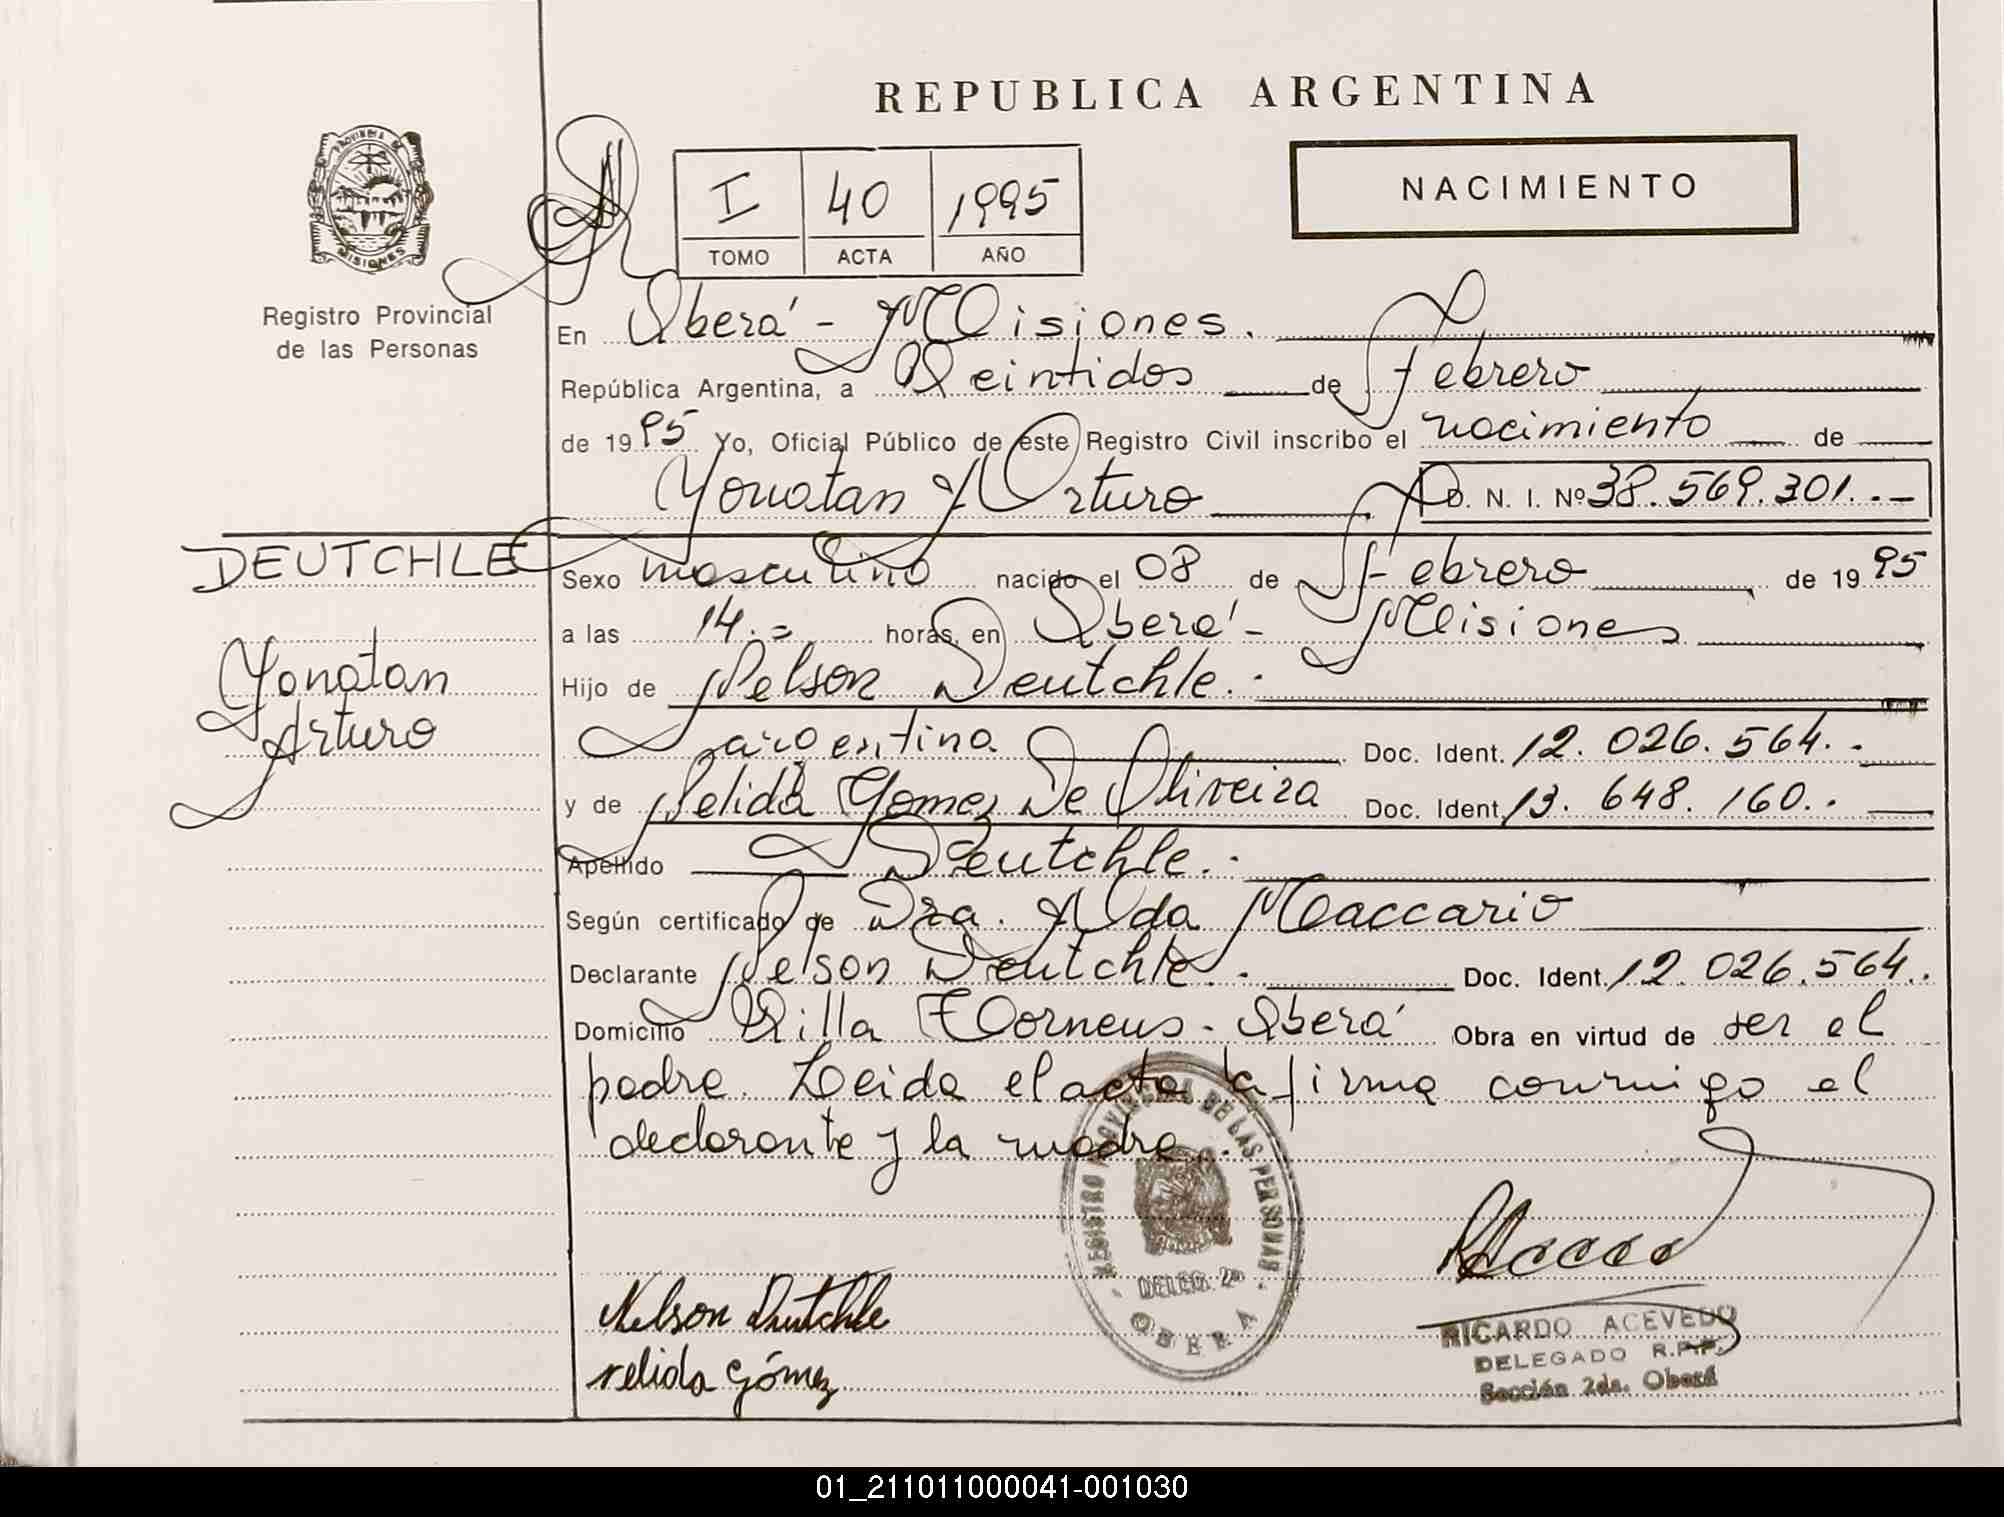 REPUBLICA ARGENTINA
PROVINCIA DE
MISIONES
Registro Provincial
de las Personas
I 40 1995
TOMO ACTA AÑO
NACIMIENTO
En Oberá - Misiones.
República Argentina, a Veintidos de Febrero
de 1995 Yo, Oficial Público de este Registro Civil inscribo el nacimiento de
Yonatan Arturo D. N. I. Nº 38.569.301.-
DEUTCHLE
Yonatan
Arturo
Sexo masculino nacido el 08 de Febrero de 1995
a las 14.= horas, en Oberá - Misiones
Hijo de Nelson Deutchle.-
argentina Doc. Ident. 12.026.564.-
y de Nelida Gomez De Oliveira Doc. Ident. 13.648.160.-
Apellido Deutchle.-
Según certificado de Dra. Alda Maccario
Declarante Nelson Deutchle.- Doc. Ident. 12.026.564.
Domicilio Villa Barneus - Oberá Obra en virtud de ser el
padre. Leida el acta la firma conmigo el
declarante y la madre.
REGISTRO PROVINCIAL DE LAS PERSONAS
DELEG. 2ª
OBERA
Nelson Deutchle
nelida gómez
RICARDO ACEVEDO
DELEGADO R.P.P.
Sección 2da. Oberá
01_211011000041-001030